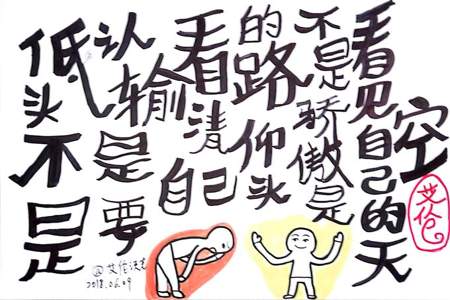 低头不是
认输是要
看清自己
的路仰头
不是骄傲是
看见自己的天
空
艾伦
@艾伦
2018.06.09